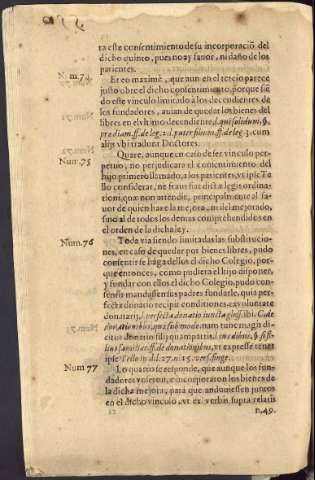 ra este consentimiento de su incorporació del
dicho quinto, pues no ay favor, ni daño de los
parientes.
Num. 74
Et eo maximè, que aun en el tercio parece
justo obre el dicho consentimiento, porque siẽ
do este vinculo limitado à los decendientes de
los fundadores, avian de quedar los bienes del
libres en el vltimo decendiente,
præd iam. ff. de leg. 2. l. pater filium. ff. de leg. 3. cum
alijs vbi tradunt Doctores.
Num. 75
Quare, aunque en caso de ser vinculo per-
petuo, no perjudicaria el consentimiento del
hijo primero llamado, à los parientes, vt ipse Te
llo considerat, ne fraus fiat dictæ legis ordina-
tioni, quæ non attendit, principalmente al fa-
uor de quien haze la mejora, ni del mejorado,
sino al de todos los demas comprehendidos en
el orden de la dicha ley.
Num. 76
Toda via siendo limitadas las substitucio-
nes, en caso de quedar por bienes libres, pudo
consentirse haga dellos el dicho Colegio, por-
que entonces, como pudiera el hijo disponer,
y fundar con ellos el dicho Colegio, pudo con-
sensu mandassen sus padres fundarle, quia per-
fecta donatio recipit conditiones, ex voluntate
donatarij, l. perfecta donatio
donationibus, quæ sub modo. nam tunc magis di
citur donatio filij quàm patris,
ff. de donationibus, vt expresse tenet
ipse Tello in d.l. 27. n. 15. vers.
Num. 77
Lo quarto se responde, que aunque los fun-
dadores vnieron, e incorporaron los bienes de
la dicha mejora, para que anduuiessen juntos
en el dicho vinculo, vt ex verbis supra relatis
n. 49.